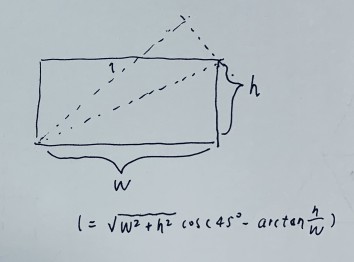 l
h
W
l = √(W²+h²) cos(45° - arctan h/W)